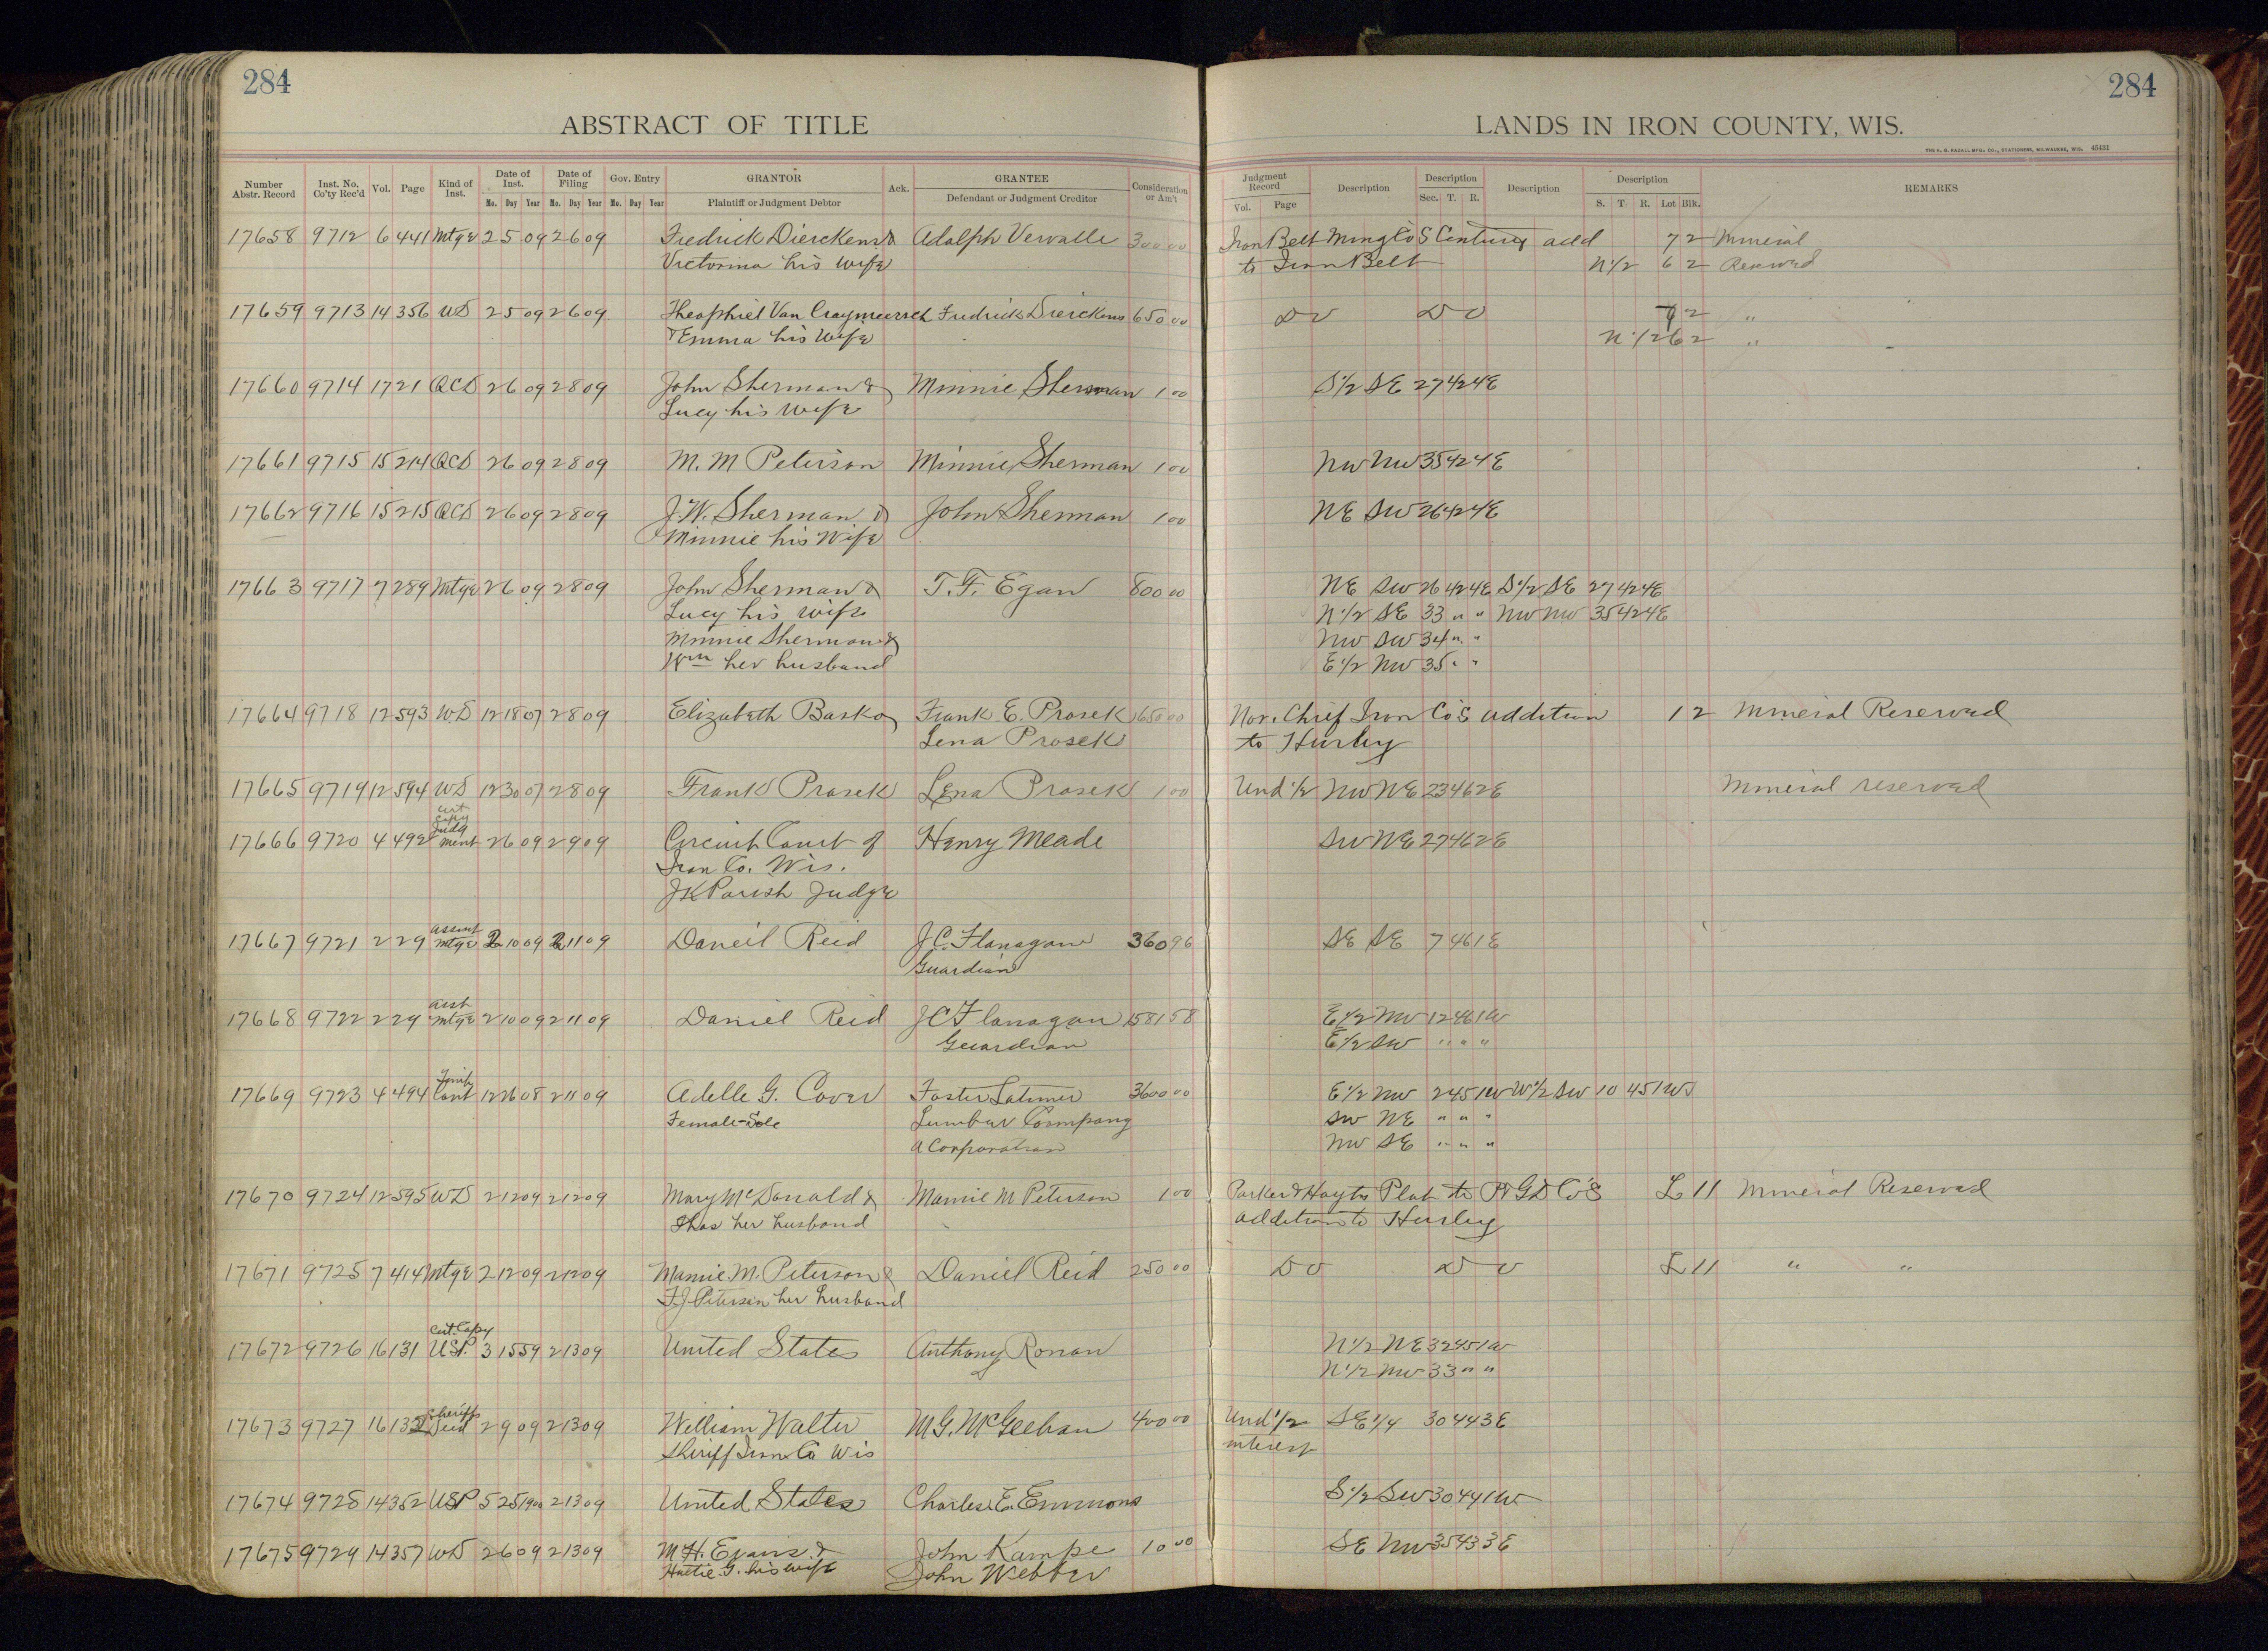 284
284
ABSTRACT OF TITLE
LANDS IN IRON COUNTY, WIS.
THE H. G. RAZALL MFG. CO., STATIONERS, MILWAUKEE, WIS. 45431
Number Abstr. Record Inst. No. Co'ty Rec'd Vol. Page Kind of Inst. Date of Inst. Mo. Day Year Date of Filing Mo. Day Year Gov. Entry Mo. Day Year GRANTOR Plaintiff or Judgment Debtor Ack. GRANTEE Defendant or Judgment Creditor Consideration or Am't
Judgment Record Vol. Page Description Description Sec. T. R. Description Description S. T. R. Lot Blk. REMARKS
17658 9712 6 441 Mtge 2 5 09 2 6 09 Fredrick Dierckens & Adolph Vervalle 300 00 Iron Belt Mining Co's Century add 7 2 Mineral
Victorina his wife to Iron Belt N 1/2 6 2 Reserved
17659 9713 14 356 WD 2 5 09 2 6 09 Theophiel Van Craymeersch Fredrick Dierckens 650 00 Do Do 7 2 "
& Emma his wife N 1/2 6 2 "
17660 9714 17 21 QCD 2 6 09 2 8 09 John Sherman & Minnie Sherman 1 00 S 1/2 SE 27 42 4E
Lucy his wife
17661 9715 15 214 QCD 2 6 09 2 8 09 M. M Peterson Minnie Sherman 1 00 NW NW 35 42 4E
17662 9716 15 215 QCD 2 6 09 2 8 09 J. W. Sherman & John Sherman 1 00 NE SW 26 42 4E
Minnie his Wife
17663 9717 7 289 Mtge 2 6 09 2 8 09 John Sherman & T. F. Egan 800 00 NE SW 26 42 4E S 1/2 SE 27 42 4E
Lucy his wife N 1/2 SE 33 " " NW NW 35 42 4E
Minnie Sherman & NW SW 34 " "
Wm her husband E 1/2 NW 35 " "
17664 9718 12 593 W.D 12 18 07 2 8 09 Elizabeth Basko Frank E. Prosek 1650 00 Nor. Chief Iron Co's addition 1 2 Mineral Reserved
Lena Prosek to Hurley
17665 9719 12 594 WD 12 30 07 2 8 09 Frank Prosek Lena Prosek 1 00 Und 1/2 NW NE 23 46 2E Mineral reserved
cert
copy
Judg
17666 9720 4 492 ment 2 6 09 2 9 09 Circuit Court of Henry Meade SW NE 27 46 2E
Iron Co. Wis.
JK Parish Judge
assmt
17667 9721 2 29 Mtge 2 10 09 2 11 09 Daneil Reid J.C. Flanagan 360 96 SE SE 7 46 1E
Guardian
asst
17668 9722 2 29 Mtge 2 10 09 2 11 09 Daniel Reid J C Flanagan 1581 58 E 1/2 NW 12 46 1W
Guardian E 1/2 SW " " "
17669 9723 4 494 Cont 12 26 08 2 11 09 Adelle G. Cover Foster Latimer 3600 00 E 1/2 NW 2 45 1W W 1/2 SW 10 45 1W
Female Sole Lumber Coompany SW NE " " "
A Corporation NW SE " " "
17670 9724 12 595 WD 2 12 09 2 12 09 Mary McDonald & Mamie M Peterson 1 00 Parker & Hoyts Plat to P GD Co'S L 11 Mineral Reserved
Thos her husband addition to Hurley
17671 9725 7 414 Mtge 2 12 09 2 12 09 Mamie M. Peterson & Daniel Reid 250 00 Do Do L 11 " "
F.J. Peterson her husband
Cert. Copy
17672 9726 16 131 U.S.P. 3 15 59 2 13 09 United States Anthony Ronan N 1/2 NE 32 45 1W
N 1/2 NW 33 " "
Sheriffs
17673 9727 16 132 Deed 2 9 09 2 13 09 William Walter M. G. McGeehan 400 00 Und 1/2 SE 1/4 30 44 3E
Sheriff Iron Co Wis interest
17674 9728 14 352 USP 5 25 1900 2 13 09 United States Charles E. Emmons S 1/2 SW 30 44 1W
17675 9729 14 357 WD 2 6 09 2 13 09 M H. Evans & John Kampe 10 00 SE NW 35 43 3E
Hattie G. his wife John Webber